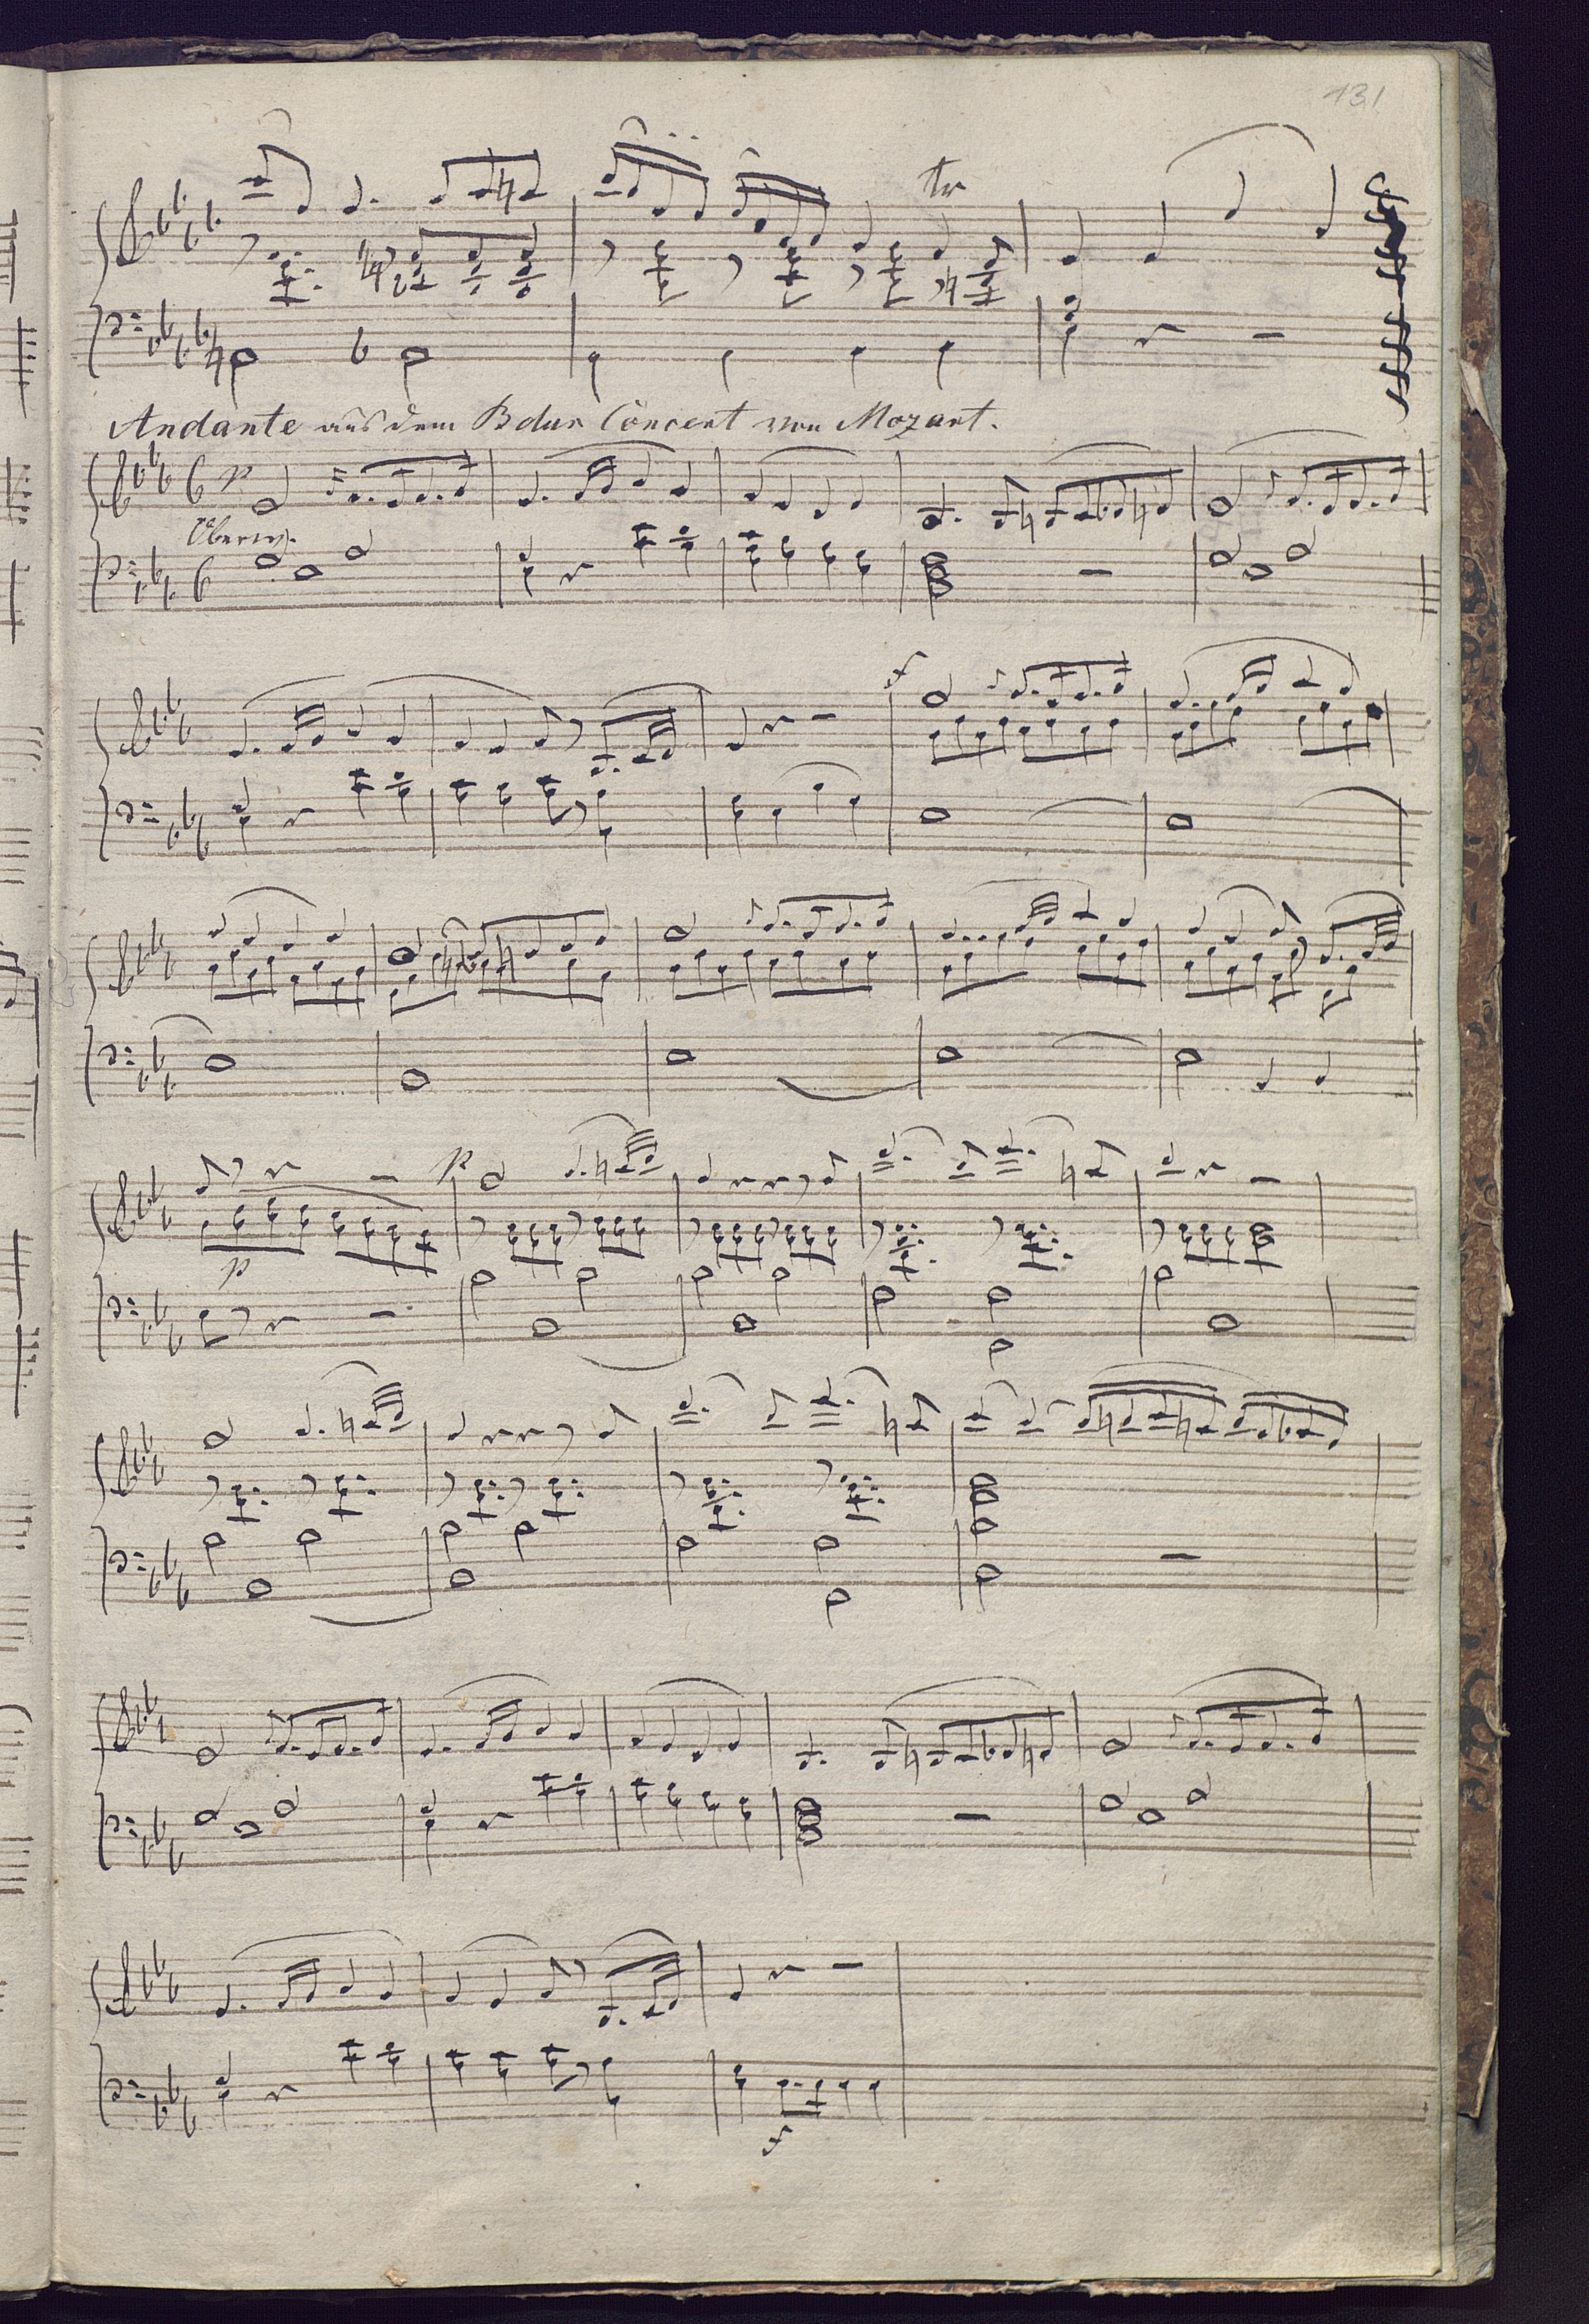 131
tr
Andante aus dem B dur Concert von Mozart.
p
Oberw.
f
p
p
f